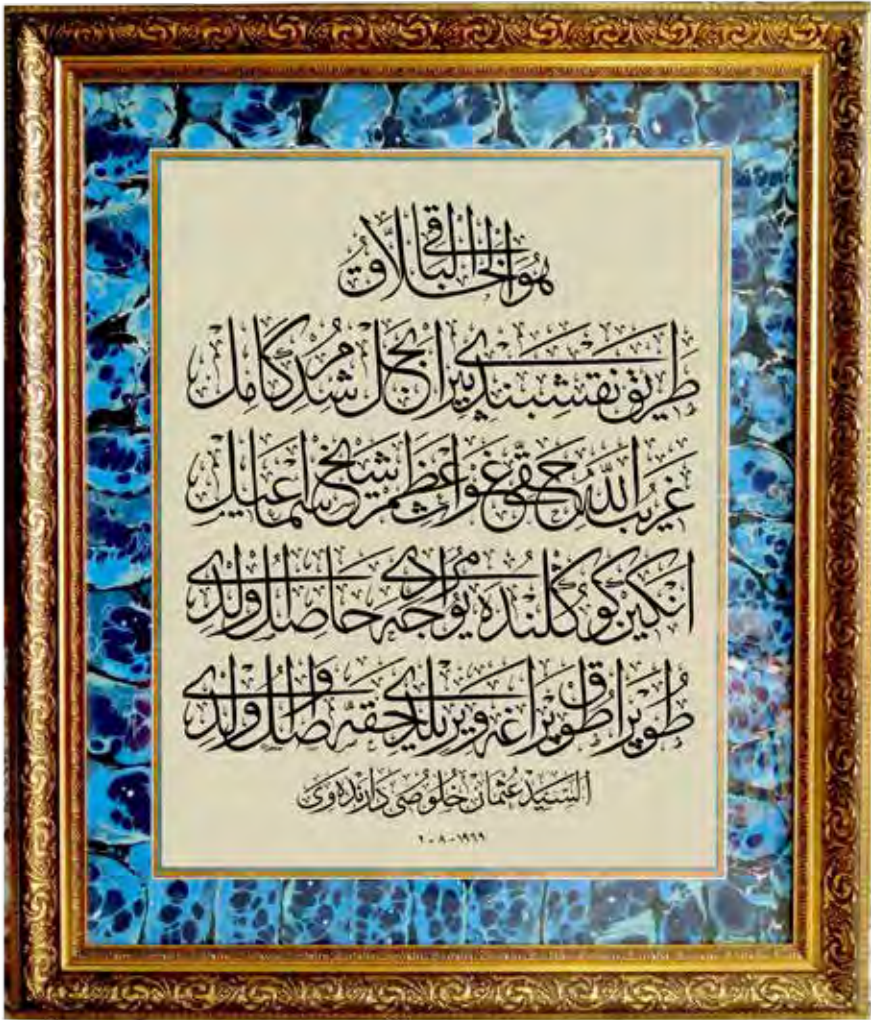 هو الخلاق الباقي
طريق نقشبندى پير ابجل مرشد كامل
غريب الله حقى غوث اعظم شيخ اسماعيل
انكين كوكلنده يوجه مرادى حاصل اولدى
طوپراق طوپراغه ويريلدى حقه واصل اولدى
السيد عثمان خلوصى دارنده وى
٢-٨-١٩٦٩